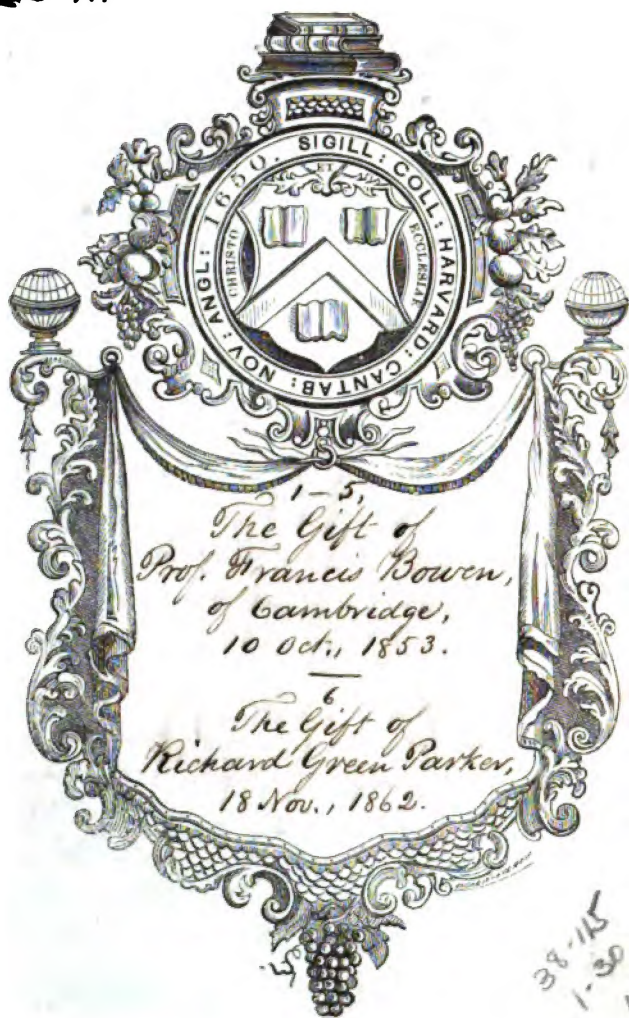 SIGILL: COLL: HARVARD: CANTAB: NOV: ANGL: 1650.
CHRISTO ET ECCLESIÆ
1-5,
The Gift of
Prof. Francis Bowen,
of Cambridge,
10 Oct., 1853.
6
The Gift of
Richard Green Parker,
18 Nov., 1862.
38-115
1-30